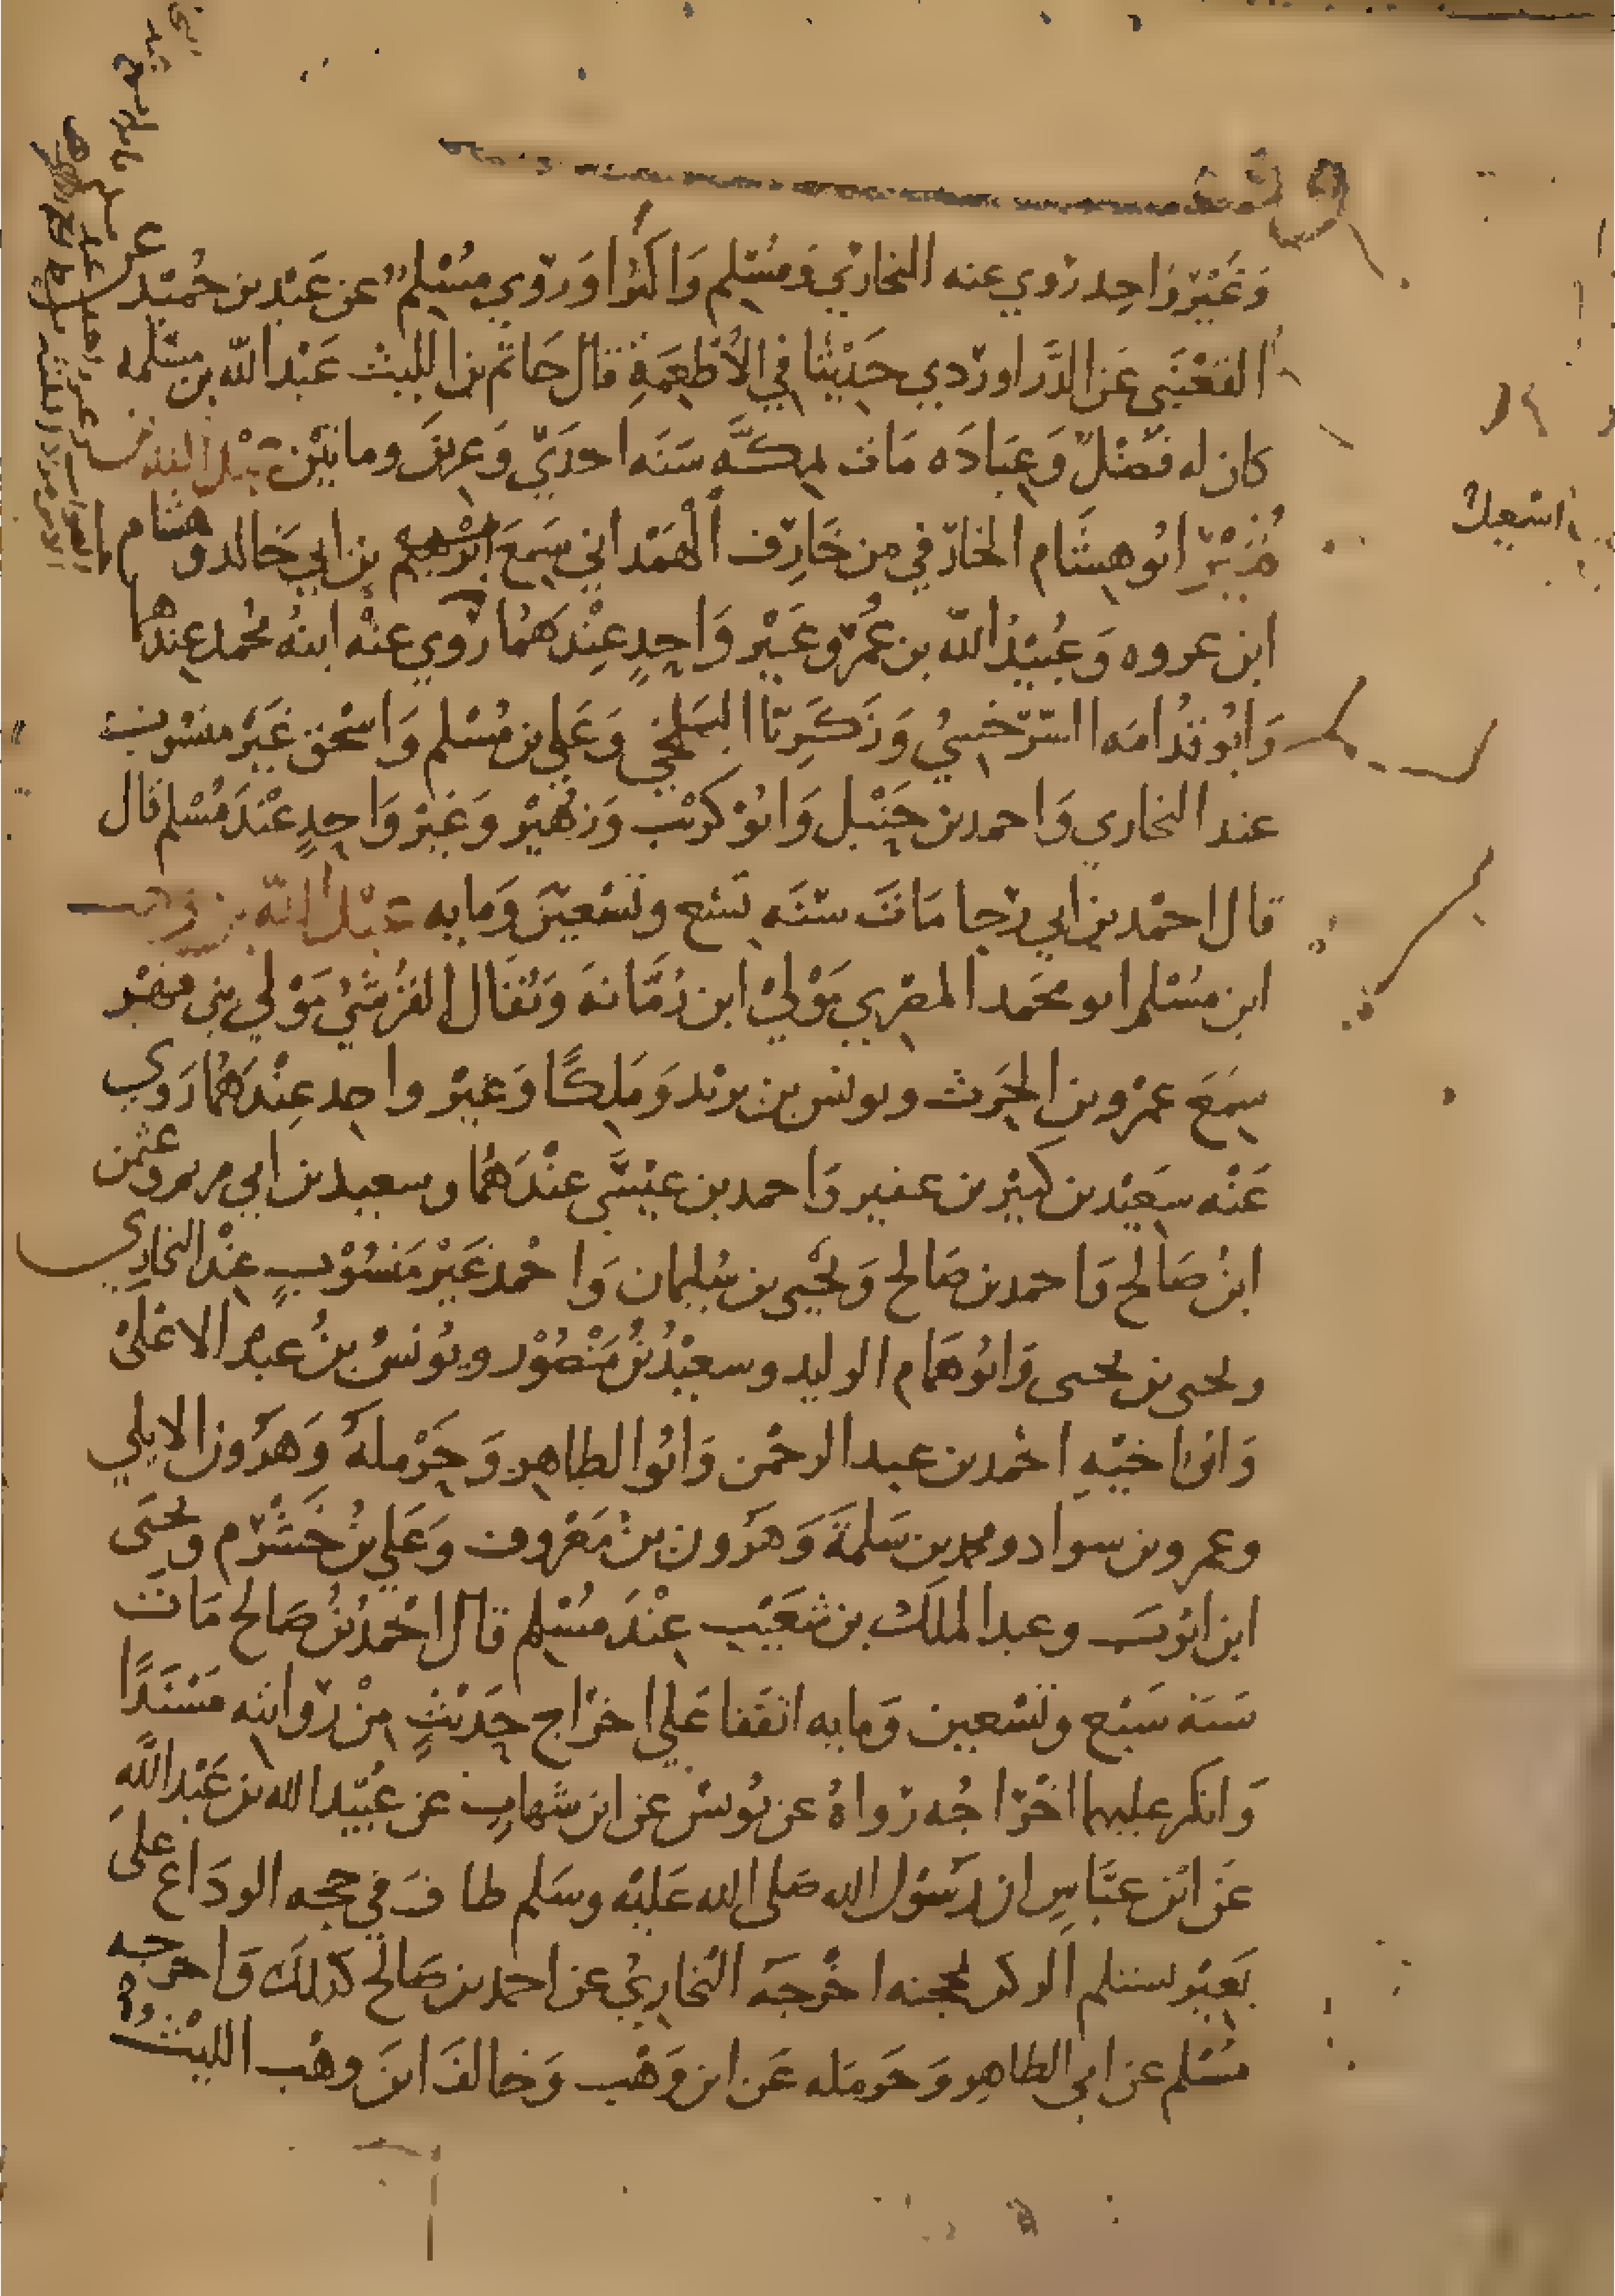 وَغَيْرُ وَاحِدٍ رَوي عنه البخاري وَمُسْلِم وَاكثرَا وَرَوي مُسْلِمٌ عن عَبْد بن حُمَيْد عن
القَعْنَبي عَن الدَّرَاوَرْدي حَدِيْثا في الأطْعِمَةِ قال حَاتم بن الليث عَبْد الله بن مسْلمه
كان له فَضْلٌ وَعِبَادَه مَات بمكَّه سَنَه احدَيّ وَعِشرين ومايتَيْن عبد الله بن
نُمَيْر ابُو هِشَام الخارفي من خَارِف الْهَمْداني سَمِعَ اسْمعيل بن ابي خَالد وهشام
ابن عروه وَعُبَيْد الله بن عُمَر وغَيْر وَاحِدٍ عِنْدَهمُا رَوي عنْهُ ابنُهُ مُحمد عِندهما
وَابُو قدُامَه السَّرْخسيُ وَزَكَرِيّا البَلخي وَعَلي بن مُسْلم وَاسْحق غَيْرُ منسُوب
عند البخاري وَاحمد بن حَنْبل وَابُوْ كرَيْب وَزهُيْر وَغَيْرُ وَاحِدٍ عنْدَ مُسْلم قال
قال احْمد بن ابي رَجا مَاتَ سَنَه تسْع وتسْعيْنَ وَمايه عَبْد الله بن وهب
ابن مُسْلم ابو محَمد المصْري مَوْلي ابن رُمَّانهَ وَيُقَال القُرَشيُ مَوْلي بني فهْر
سمَعَ عمرْو بنِ الحَرث ويونس بن يزيد وَمَلكًا وَغيْرُ واحد عِنْدَهُمَا رَوي
عَنْه سَعيْد بن كَبيْر بن عفير وَاحمد بن عيسَّي عنْدَهُمَا وسعيد بن ابي مريم وعثمن
ابنُ صَالح وَاحمد بن صَالح وَيحْيَى بن سُليمان وَاحْمد غَيْر مَنْسُوْبٍ عِنْد البخاري
ويحيى بن يحيى وَابُو همَام الوليد وسعيْدُ بْنُ مَنْصُوْر ويُونسُ بنُ عبد الاعْلى
وَابْن اخيْهِ احْمد بن عبد الرحمْن وَابُوا الطاهِر وَحَرْملهُ وَهَرُون الايلي
وعمرو بن سواد ومحمد بن سَلمَةَ وَهَرُون بنُ مَعْرُوف وَعَلي بنُ خَشْرَم ويحْيَى
ابن ايُوب وعبد المَلك بن شعَيْب عِنْدَ مُسْلم قال احْمدُ بْنُ صَالح مَات
سَنَة سَبْع وتسْعين وَمايه اتفَقا عَلي اخرَاج حَدِيْثٍ مِنْ رَوايتِه مسْنَدًا
وَانكر عليهما اخرَاجُه رَواهُ عن يُونسْ عن ابن شهابٍ عن عُبَيْد الله بن عَبْد اللَّهِ
عَن ابْن عبَّاسٍ ان رَسُول الله صَلى الله عَليْه وسَلم طافَ في حجه الودَاع على
بَعِيْر يستلم الركن بمحجنه اخْرجَهُ البُخاريُ عن احمد بن صَالح كذلكَ وَاخرجه
مُسْلم عن ابي الطاهِر وَحَرمَله عَن ابن وَهْب وَخالفَ ابنَ وهْب الليْثُ